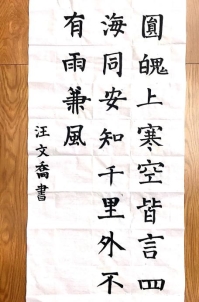 圓魄上寒空皆言四
海同安知千里外不
有雨兼風
汪文喬書